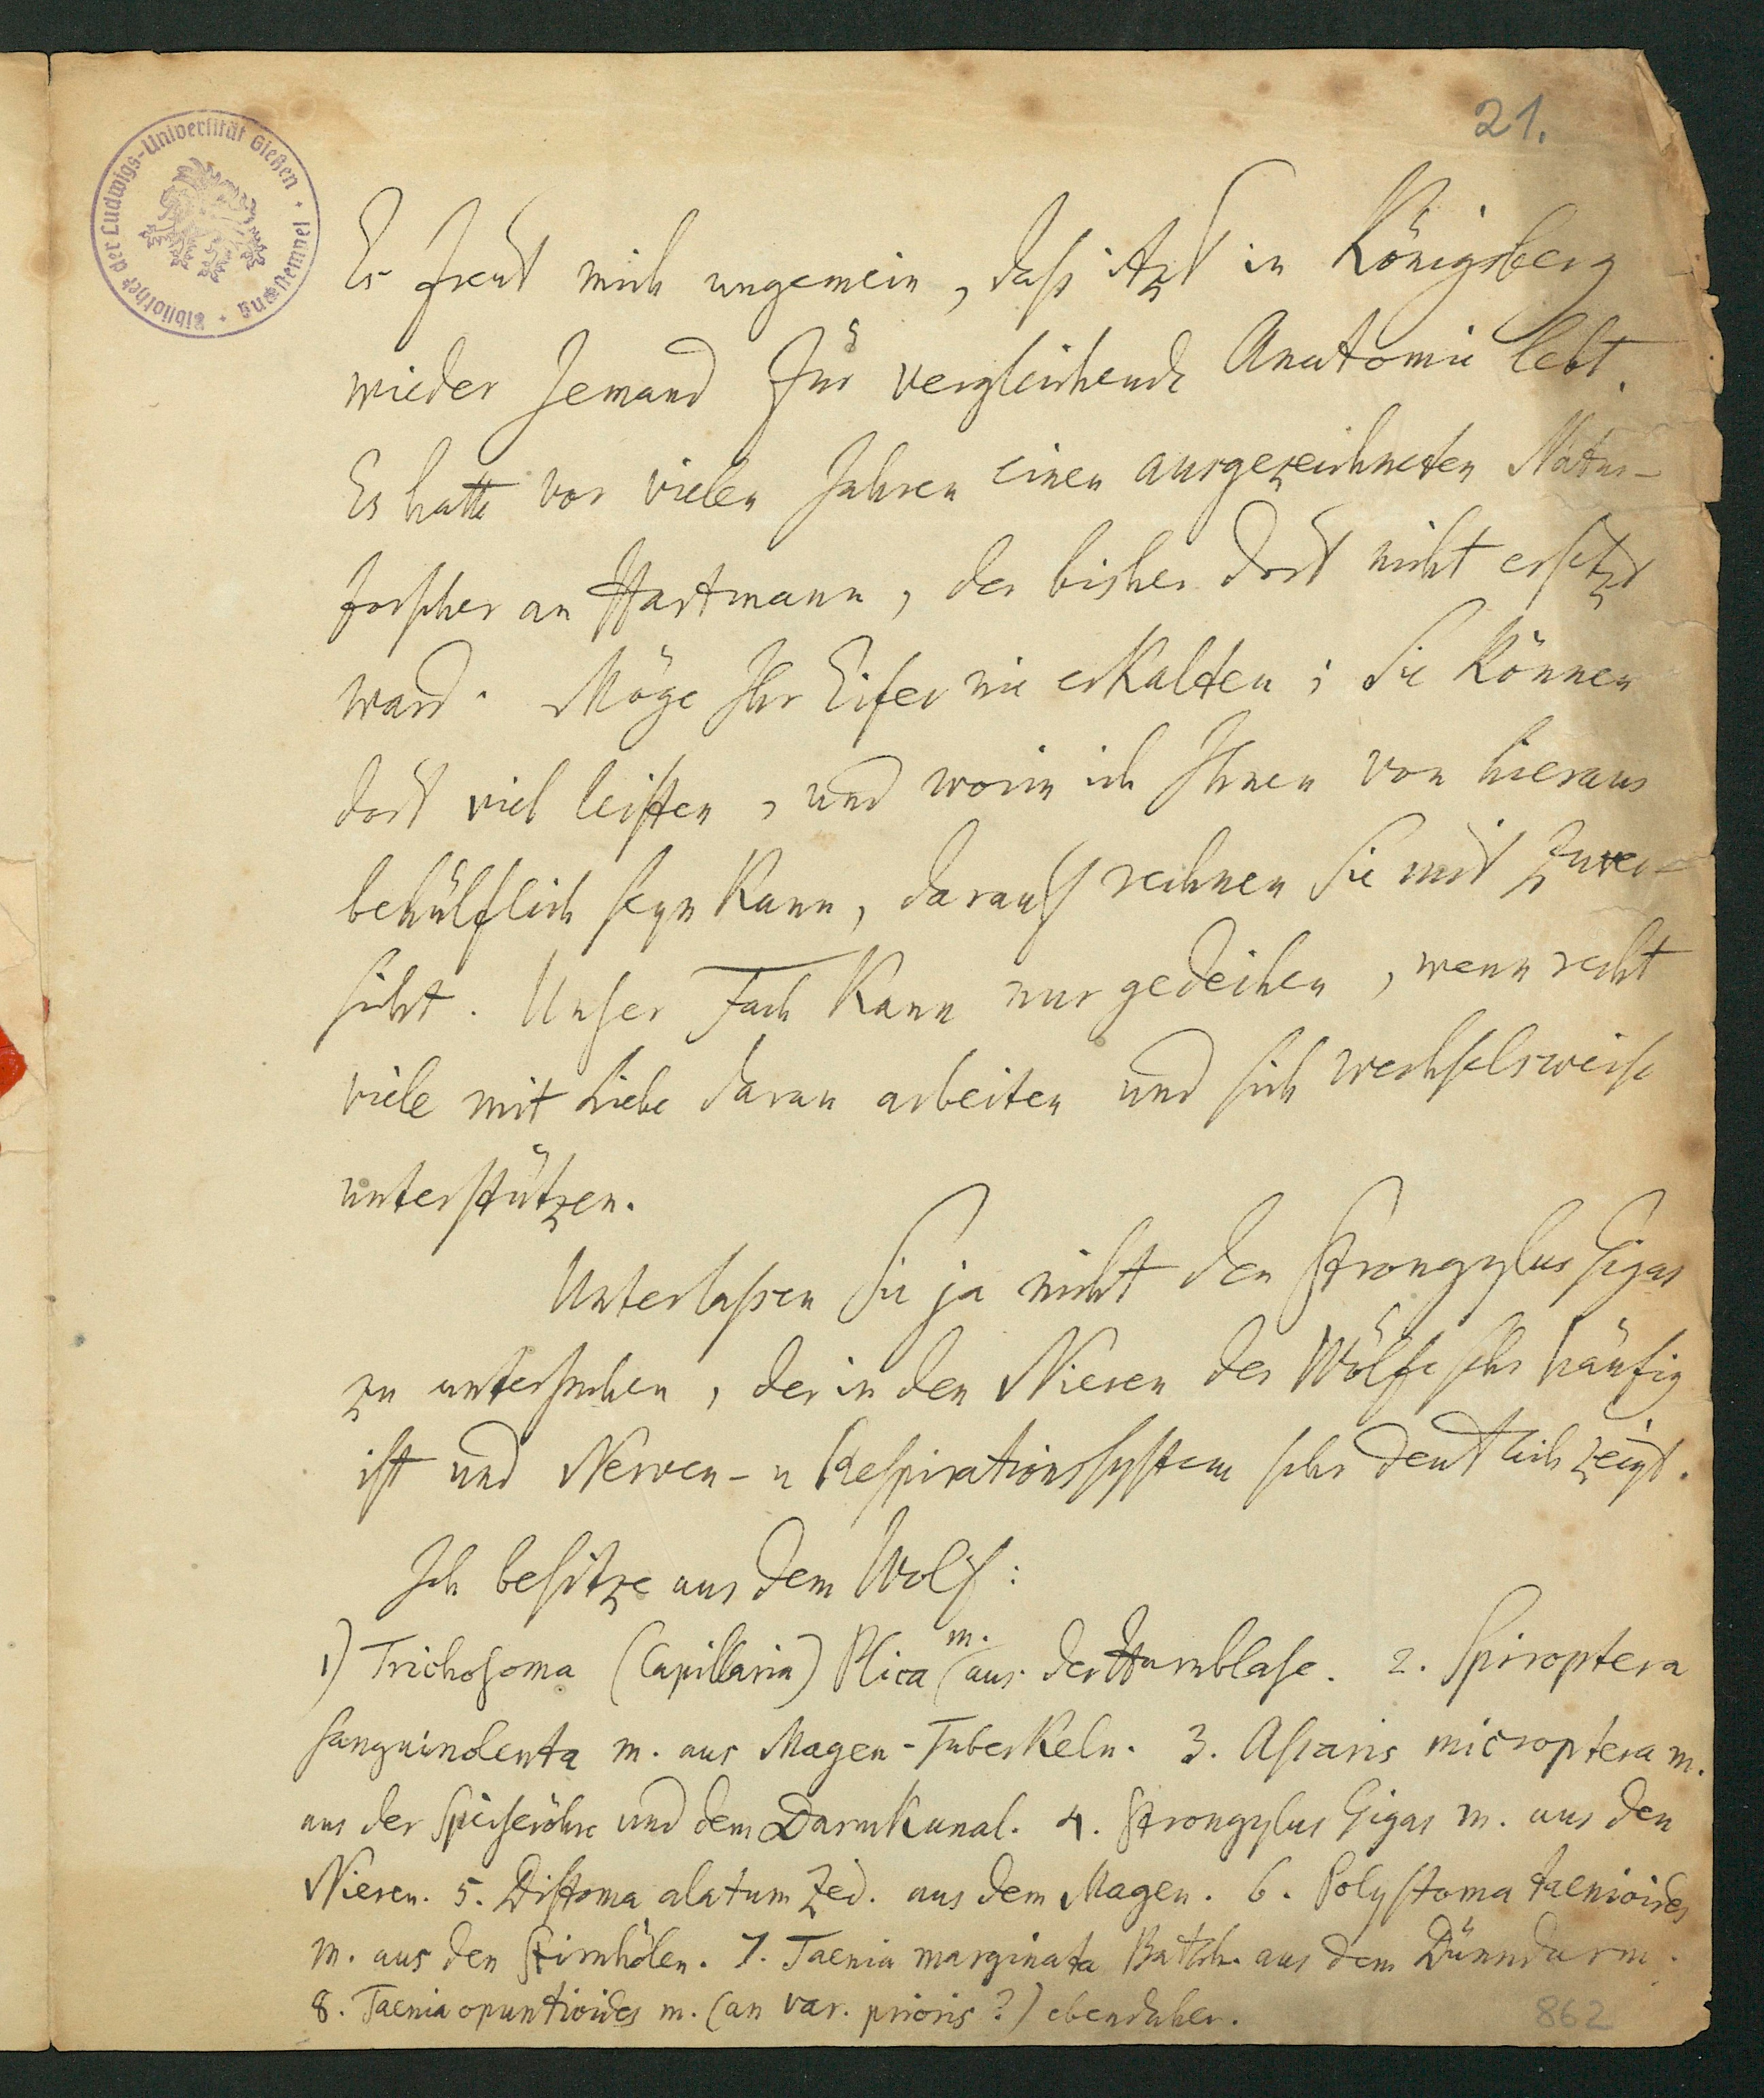 21.
Bibliothek der Ludwigs-Universität Gießen
Es freut mich ungemein, daß itzt in Königsberg
wieder Jemand für vergleichende Anatomie lebt.
Es hatte vor vielen Jahren einen ausgezeichneten Natur-
forscher an Hartmann, der bisher dort nicht ersetzt
ward. Möge Ihr Eifer nie erkalten; Sie können
dort viel leisten, und worin ich Ihnen von hieraus
behülflich seyn kann, darauf rechnen Sie mit Zuver-
sicht. Unser Fach kann nur gedeihen, wenn recht
viele mit Liebe daran arbeiten und sich wechselsweise
unterstützen.
Unterlassen Sie ja nicht den Strongylus Gigas
zu untersuchen, der in den Nieren der Wölfe sehr häufig
ist und Nerven- u Respirationssystem sehr deutlich zeigt.
Ich besitze aus dem Wolf:
1) Trichosoma (Capillaria) Plica m. aus der Harnblase. 2. Spiroptera
sanguinolenta m. aus Magen-Tuberkeln. 3. Ascaris microptera m.
aus der Speiseröhre und dem Darmkanal. 4. Strongylus Gigas m. aus den
Nieren. 5. Distoma alatum Zed. aus dem Magen. 6. Polystoma taenioides
m. aus den Stirnhölen. 7. Taenia marginata Batsch. aus dem Dünndarm.
8. Taenia opuntioides m. (an var. prioris?) ebendaher.
862